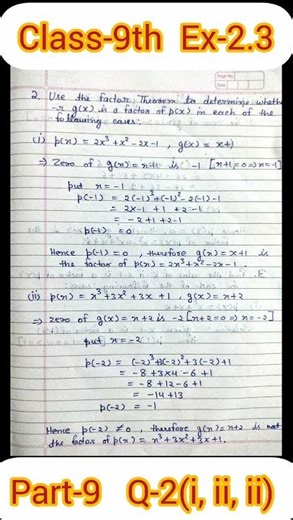 Class-9th Ex-2.3
Page No.
Date
2. Use the factor Theorem to determine wheth
-er g(x) is a factor of p(x) in each of the
following cases:
(i) p(x) = 2x³+x²-2x-1 , g(x) = x+1
⇒ Zero of g(x) = x+1 is -1 [x+1=0 ⇒ x=-1]
put x = -1
p(-1) = 2(-1)³+(-1)²-2(-1)-1
= 2x-1 +1 +2-1
= -2+1+2-1
p(-1) = 0
Hence p(-1) = 0 , therefore g(x) = x+1 is
the factor of p(x) = 2x³+x²-2x-1.
(ii) p(x) = x³+3x²+3x+1 , g(x) = x+2
⇒ Zero of g(x) = x+2 is -2 [x+2=0 ⇒ x=-2]
put x = -2
p(-2) = (-2)³+3(-2)²+3(-2)+1
= -8+3x4-6+1
= -8+12-6+1
= -14+13
p(-2) = -1
Hence p(-2) ≠ 0 , therefore g(x) = x+2 is not
the factor of p(x) = x³+3x²+3x+1.
Part-9 Q-2(i, ii, ii)